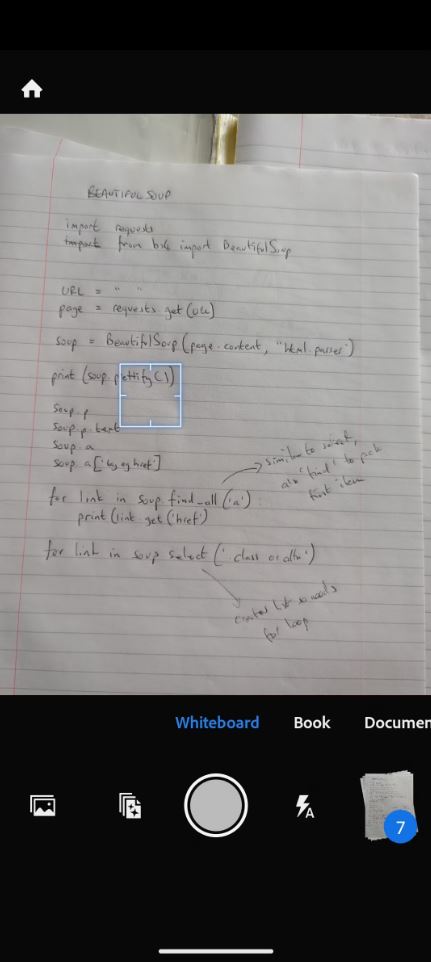 BEAUTIFUL SOUP
import requests
import from bs4 import BeautifulSoup
URL = " "
page = requests get (URL)
soup = BeautifulSoup (page.content, "html.parser")
print (soup.pettify())
soup.p
soup.p.text
soup.a
soup.a['eg href']
similar to select,
also 'find' to pick
first item
for link in soup.find_all ('a')
print (link.get ('href')
for link in soup select ('.class or
creates list so needs
for loop
Whiteboard
Book
Documen
A
7